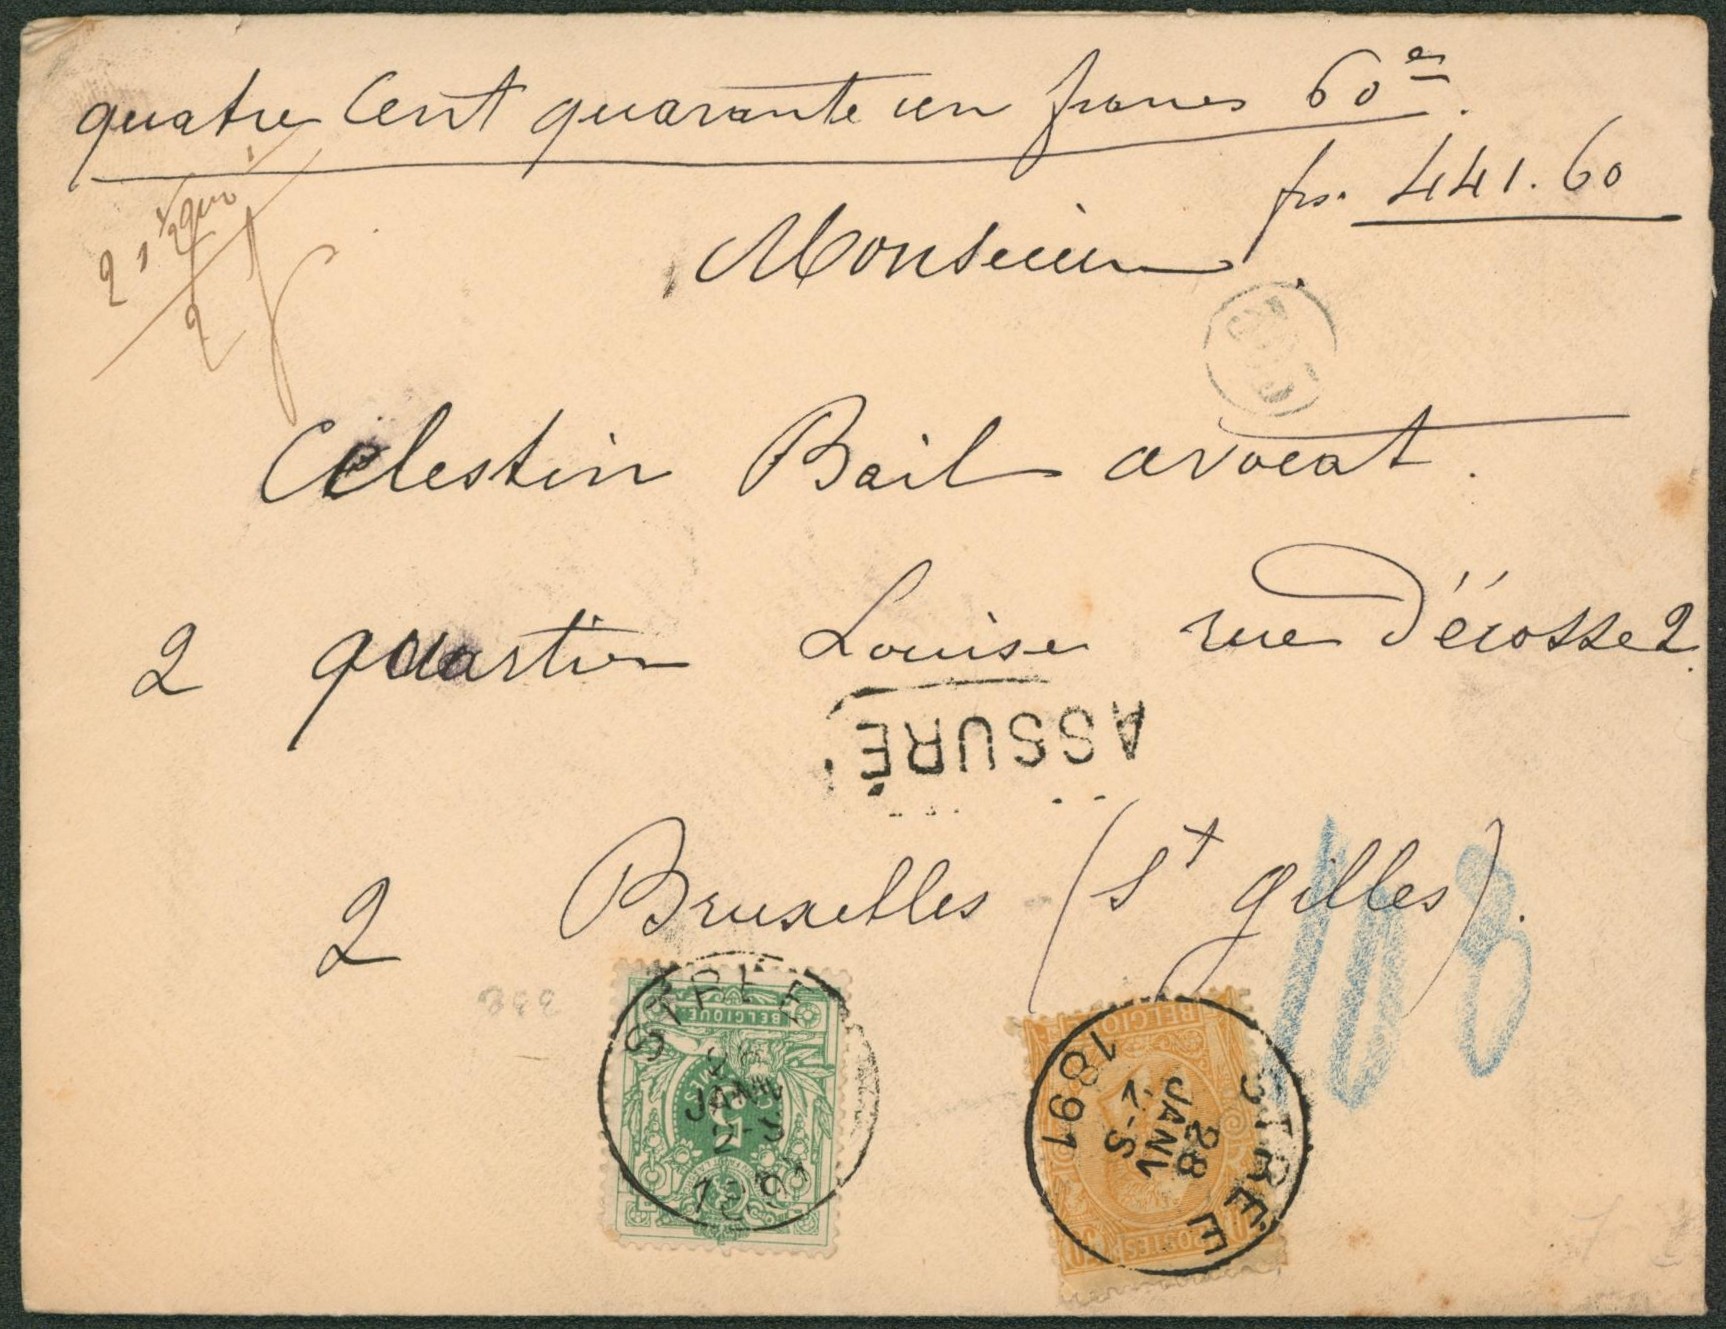 quatre Cent quarante un francs 60 cs.
frs. 441.60
Monsieur
Celestin Bail avocat.
2 quartier Louise rue d'écosse 2.
ASSURÉ
2 Bruxelles (St gilles).
108
BELGIQUE
5
STRÉE
28
JANV
2-3
1891
BELGIQUE
POSTES
STRÉE
28
JANV
1891